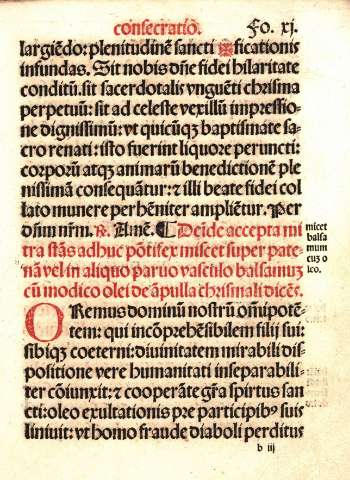 consecratiō. Fo. xj.
largiēdo: plenitudinē sancti ✠ficationis
infundas. Sit nobis dñe fidei hilaritate
conditū. sit sacerdotalis vnguēti chrisma
perpetuū: sit ad celeste vexillū impressio-
ne dignissimū: vt quicūqꝫ baptismate sa-
cro renati: isto fuerint liquore peruncti:
corporū atqꝫ animarū benedictionē ple
nissimā consequātur: ⁊ illi beate fidei col
lato munere perhēniter ampliētur. Per
dñm nr̄m. ℟. Amē. ¶ Deīde accepta mi
tra stās adhuc pōtifex miscet super pate-
nā vel in aliquo paruo vasculo balsamuꝫ
cū modico olei de āpulla chrismali dicēs.
micet
balsa
mum
cuꝫ o
leo.
ORemus dominū nostrū om̄ipotē-
tem: qui incōprehēsibilem filij sui:
sibiqꝫ coeterni: diuinitatem mirabili dis-
positione vere humanitati inseparabili-
ter cōiunxit: ⁊ cooperāte gr̄a spirtus san
cti: oleo exultationis pre participibꝰ suis
liniuit: vt homo fraude diaboli perditus
b iij